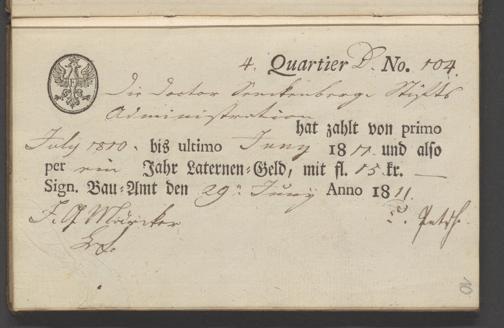 4. Quartier D. No. 104.
Die Doctor Senckenberge Stifts
Administration
hat zahlt von primo
July 1810. bis ultimo Juny 1811. und also
per ein Jahr Laternen-Geld, mit fl. 15. kr. —
Sign. Bau-Amt den 29. Juny Anno 1811.